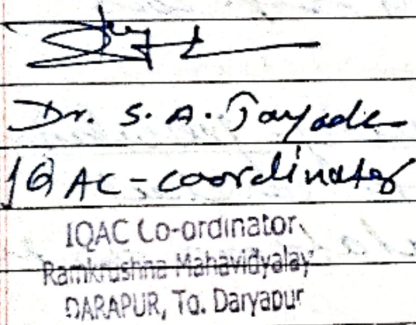 Dr. S. A. Tayade
IQAC-coordinator
IQAC Co-ordinator
Ramkrushna Mahavidyalay
DARAPUR, Tq. Daryapur